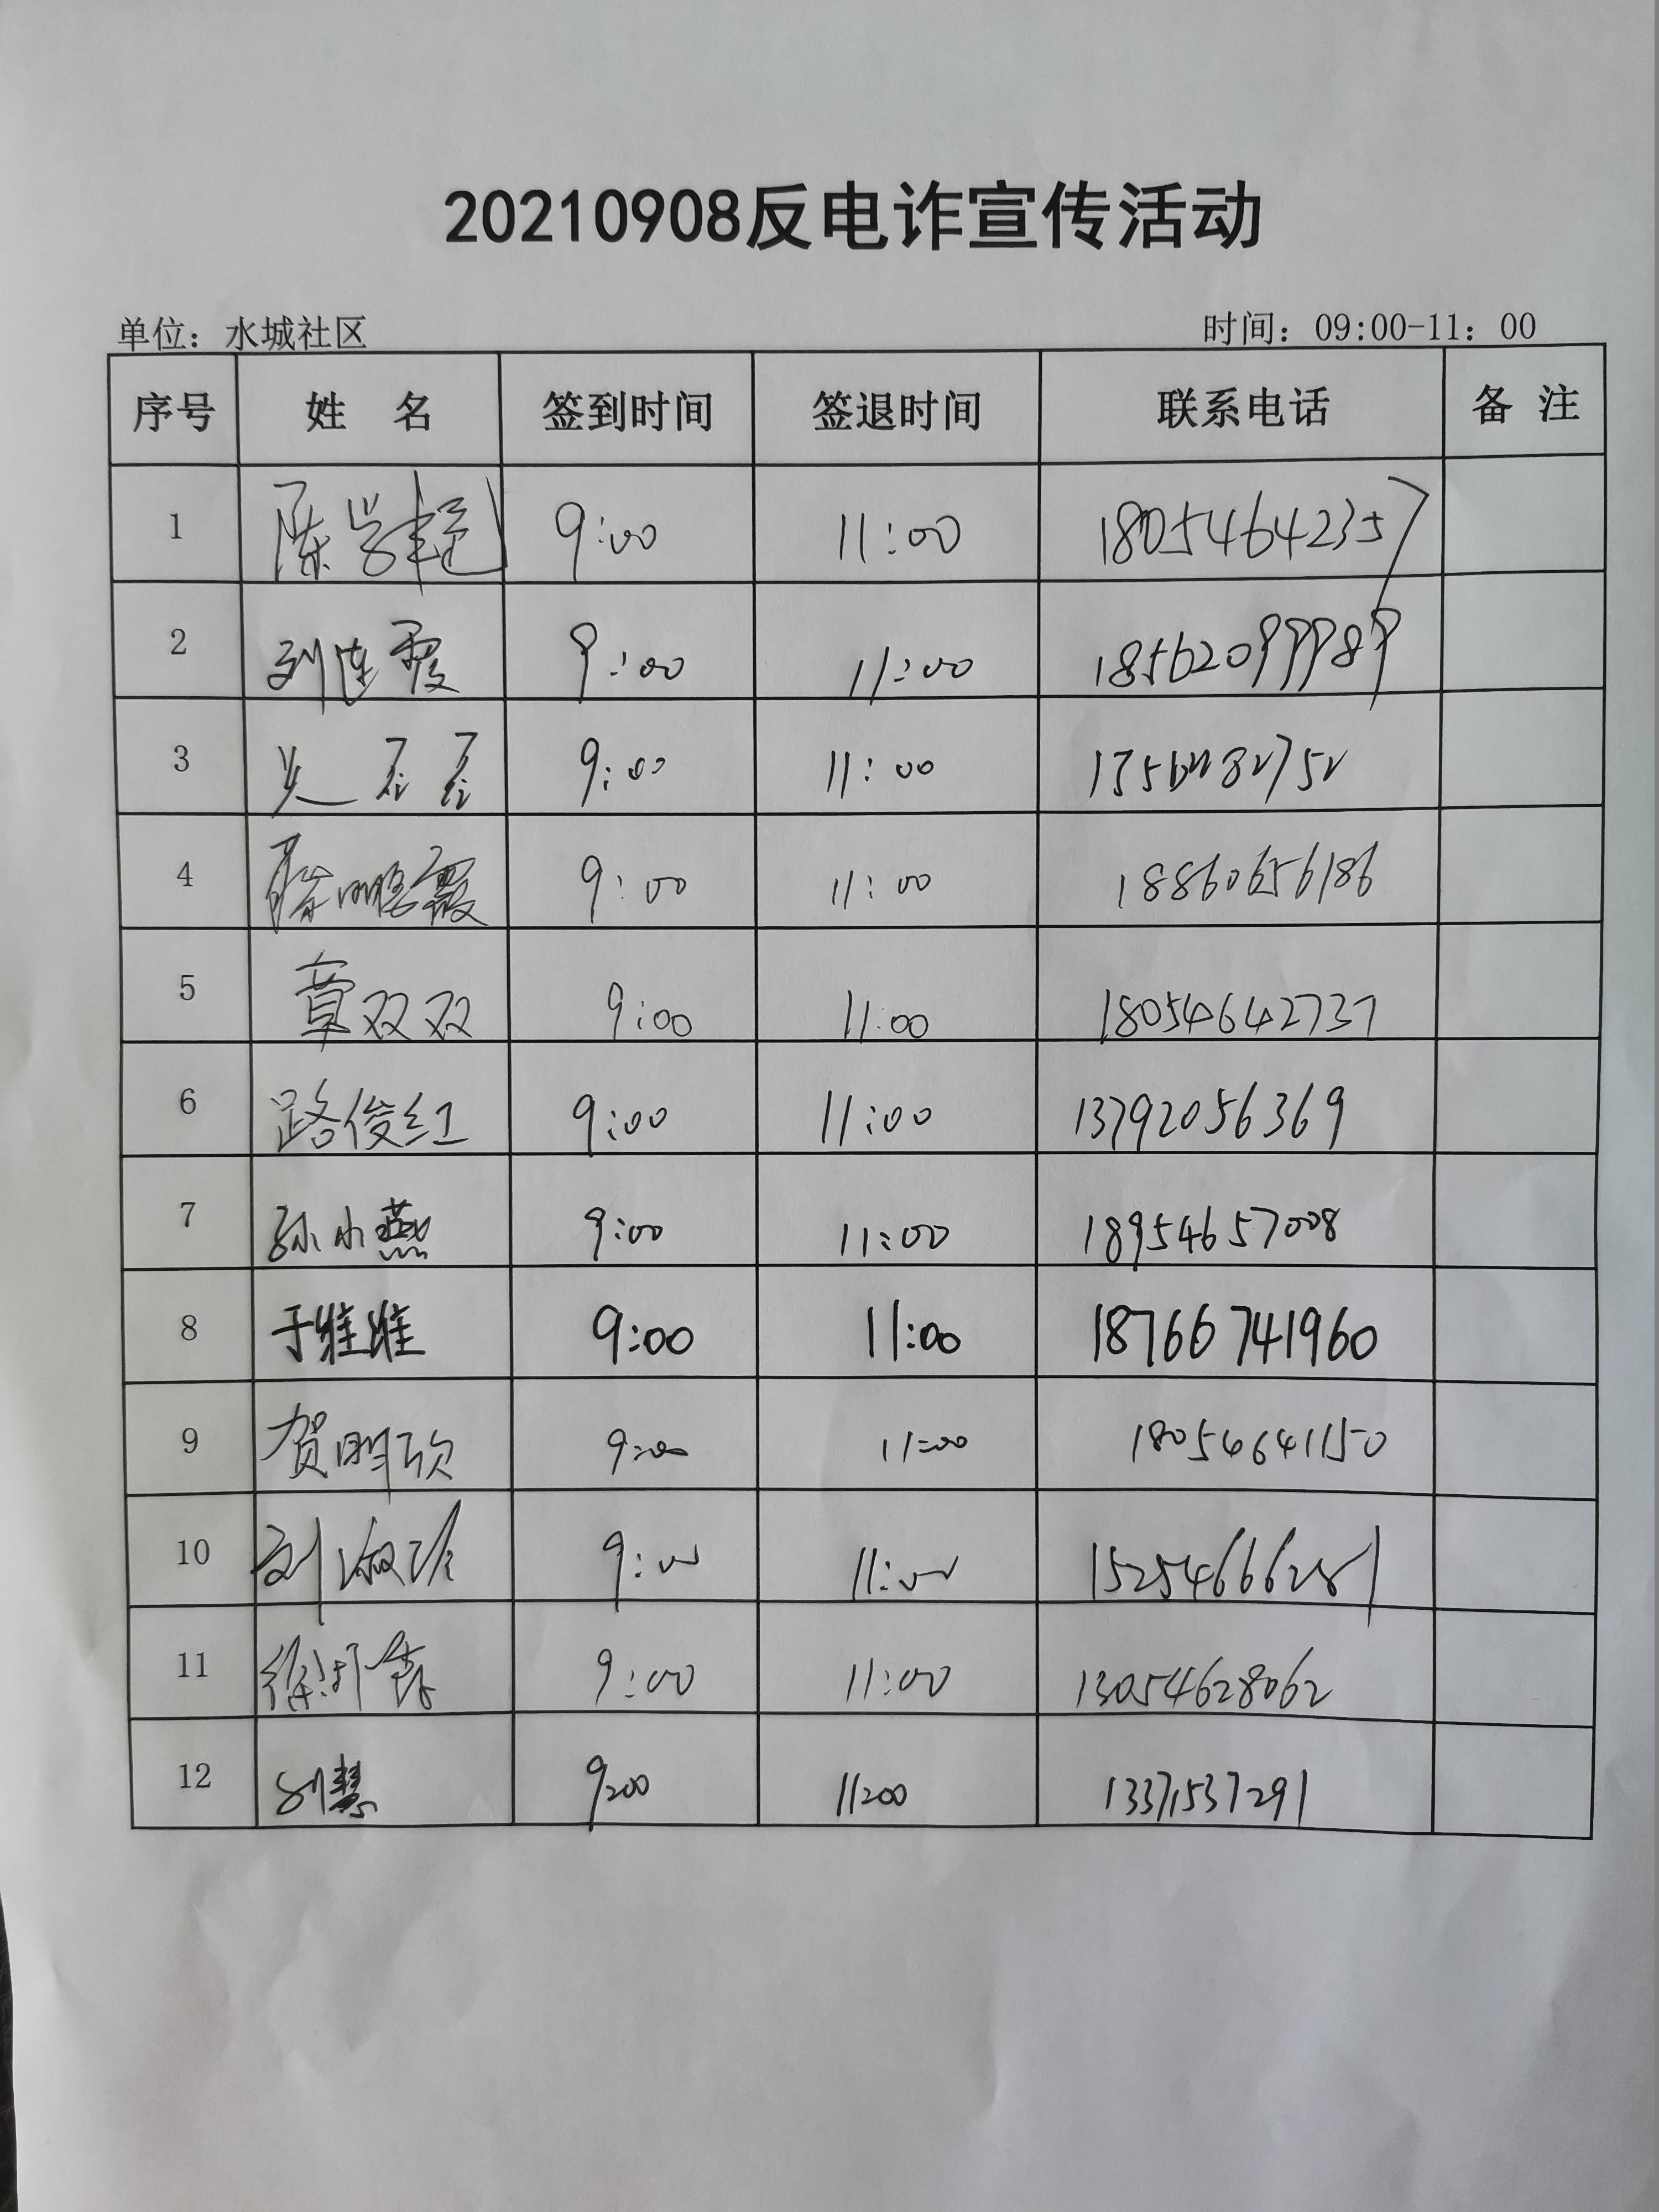 20210908反电诈宣传活动
单位：水城社区 时间：09:00-11：00
序号 姓 名 签到时间 签退时间 联系电话 备 注
1 陈学超 9:00 11:00 18054642357
2 刘连霞 9:00 11:00 18562099989
3 9:00 11:00
4 9:00 11:00 18860656186
5 章双双 9:00 11:00 18054642737
6 路俊红 9:00 11:00 13792056369
7 孙小燕 9:00 11:00 18954657008
8 于维维 9:00 11:00 18766741960
9 贺明欣 9:00 11:00 18054641150
10 9:00 11:00
11 9:00 11:00 13054628062
12 刘慧 9:00 11:00 13371537291